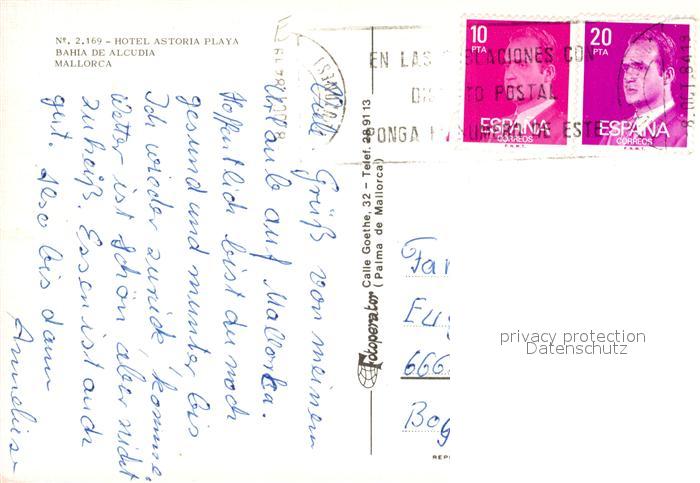 Nº. 2.169 - HOTEL ASTORIA PLAYA
BAHIA DE ALCUDIA
MALLORCA
Viele Grüß von meinem
Urlaub auf Mallorka.
Hoffentlich bist du noch
gesund und munter bis
Ich wieder zurück komme.
Wetter ist schön aber nicht
zu heiß. Essen ist auch
gut. Also bis dann
Annelies
Fotoperator Calle Goethe, 32 - Telef. 28 91 13
( Palma de Mallorca)
10
PTA
ESPAÑA
CORREOS
F.N.M.T.
20
PTA
ESPAÑA
CORREOS
F.N.M.T.
EN LAS POBLACIONES CON
DISTRITO POSTAL
PONGA EL NUMERO DE ESTE
Fa
Eu
666
Bo
REP
privacy protection
Datenschutz